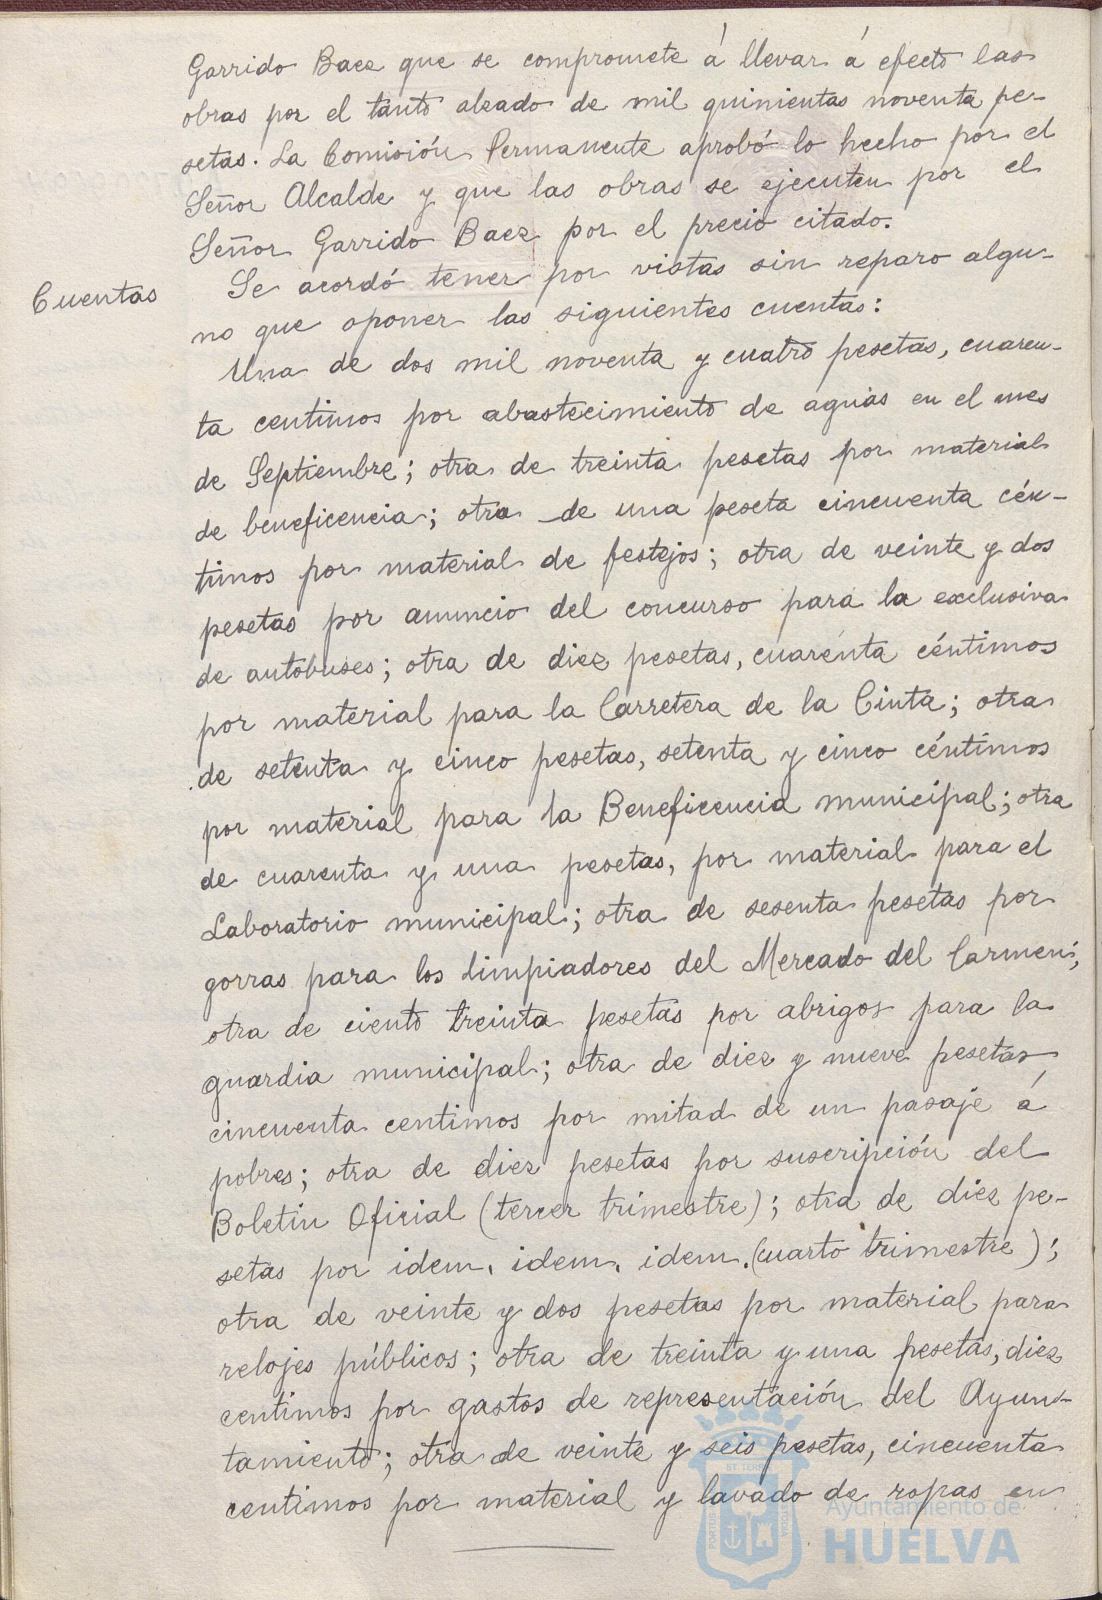 Garrido Baez que se compromete á llevar á efecto las
obras por el tanto alzado de mil quinientas noventa pe-
setas. La Comisión Permanente aprobó lo hecho por el
Señor Alcalde y que las obras se ejecuten por el
Señor Garrido Baez por el precio citado.
Cuentas
Se acordó tener por vistas sin reparo algu-
no que oponer las siguientes cuentas:
Una de dos mil noventa y cuatro pesetas, cuaren-
ta centimos por abastecimiento de aguas en el mes
de Septiembre; otra de treinta pesetas por material
de beneficencia; otra de una peseta cincuenta cén-
timos por material de festejos; otra de veinte y dos
pesetas por anuncio del concurso para la exclusiva
de autobuses; otra de diez pesetas, cuarenta céntimos
por material para la Carretera de la Cinta; otra
de setenta y cinco pesetas, setenta y cinco céntimos
por material para la Beneficencia municipal; otra
de cuarenta y una pesetas, por material para el
Laboratorio municipal; otra de sesenta pesetas por
gorras para los limpiadores del Mercado del Carmen;
otra de ciento treinta pesetas por abrigos para la
guardia municipal; otra de diez y nueve pesetas
cincuenta centimos por mitad de un pasaje á
pobres; otra de diez pesetas por suscripción del
Boletin Oficial (tercer trimestre); otra de diez pe-
setas por idem, idem, idem. (cuarto trimestre);
otra de veinte y dos pesetas por material para
relojes públicos; otra de treinta y una pesetas, diez
centimos por gastos de representación del Ayun-
tamiento; otra de veinte y seis pesetas, cincuenta
centimos por material y lavado de ropas en
Ayuntamiento de
HUELVA